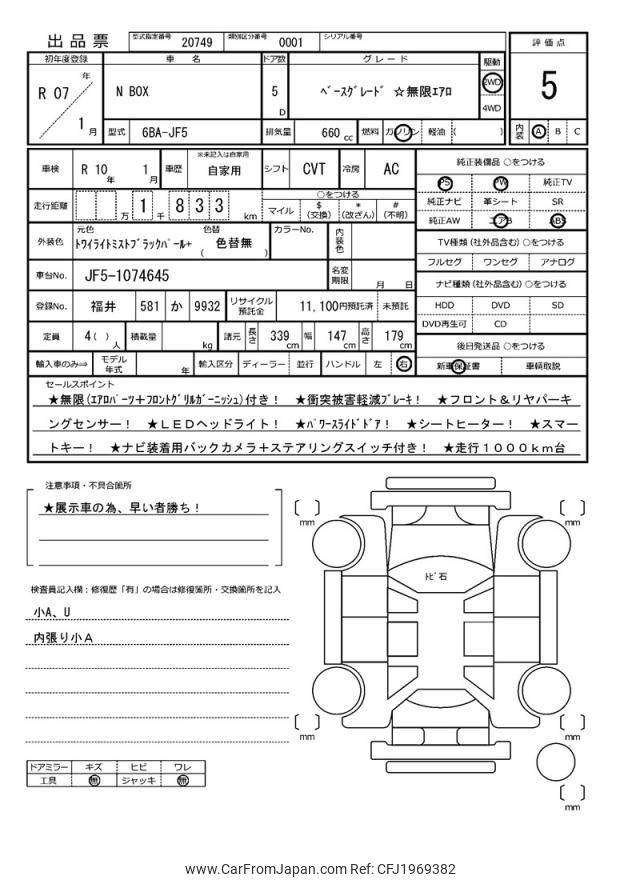 出品票 型式指定番号 20749 類別区分番号 0001 シリアル番号
初年度登録 車 名 ドア数 グレード 駆動 評価点
R 07 年 1 月 N BOX 5 D ﾍﾞｰｽｸﾞﾚｰﾄﾞ ☆無限ｴｱﾛ 2WD 4WD 5
型式 6BA-JF5 排気量 660 cc 燃料 ガソリン 軽油 ( ) 内装 A B C
車検 R 10 年 1 月 車歴 ※未記入は自家用 自家用 シフト CVT 冷房 AC
純正装備品 ○をつける
PS PW 純正TV
純正ナビ 革シート SR
純正AW エアB ABS
走行距離 万 1 千 8 3 3 km ○をつける
マイル $(交換) *(改ざん) #(不明)
外装色 元色 ﾄﾜｲﾗｲﾄﾐｽﾄﾌﾞﾗｯｸﾊﾟｰﾙ+ 色替 ( 色替無 ) カラーNo. 内装色
TV種類 (社外品含む) ○をつける
フルセグ ワンセグ アナログ
車台No. JF5-1074645 名変期限 月 日
ナビ種類 (社外品含む) ○をつける
HDD DVD SD
DVD再生可 CD
登録No. 福井 581 か 9932 リサイクル預託金 11,100円預託済 未預託
定員 4 ( ) 人 積載量 kg 諸元 長さ 339 cm 幅 147 cm 高さ 179 cm
後日発送品 ○をつける
新車保証書 車輌取説
輸入車のみ⇒ モデル年式 年 輸入区分 ディーラー 並行 ハンドル 左 右
セールスポイント
★無限(ｴｱﾛﾊﾟｰﾂ+ﾌﾛﾝﾄｸﾞﾘﾙｶﾞｰﾆｯｼｭ)付き！ ★衝突被害軽減ﾌﾞﾚｰｷ！ ★フロント＆リヤパーキ
ングセンサー！ ★ＬＥＤヘッドライト！ ★ﾊﾟﾜｰｽﾗｲﾄﾞﾄﾞｱ！ ★シートヒーター！ ★スマー
トキー！ ★ナビ装着用バックカメラ＋ステアリングスイッチ付き！ ★走行１０００ｋｍ台
注意事項・不具合箇所
★展示車の為、早い者勝ち！
検査員記入欄：修復歴「有」の場合は修復箇所・交換箇所を記入
小A、U
内張り小Ａ
ﾄﾋﾞ石
mm
mm
mm
mm
mm
ドアミラー キズ ヒビ ワレ
工具 無 ジャッキ 無
www.CarFromJapan.com Ref: CFJ1969382